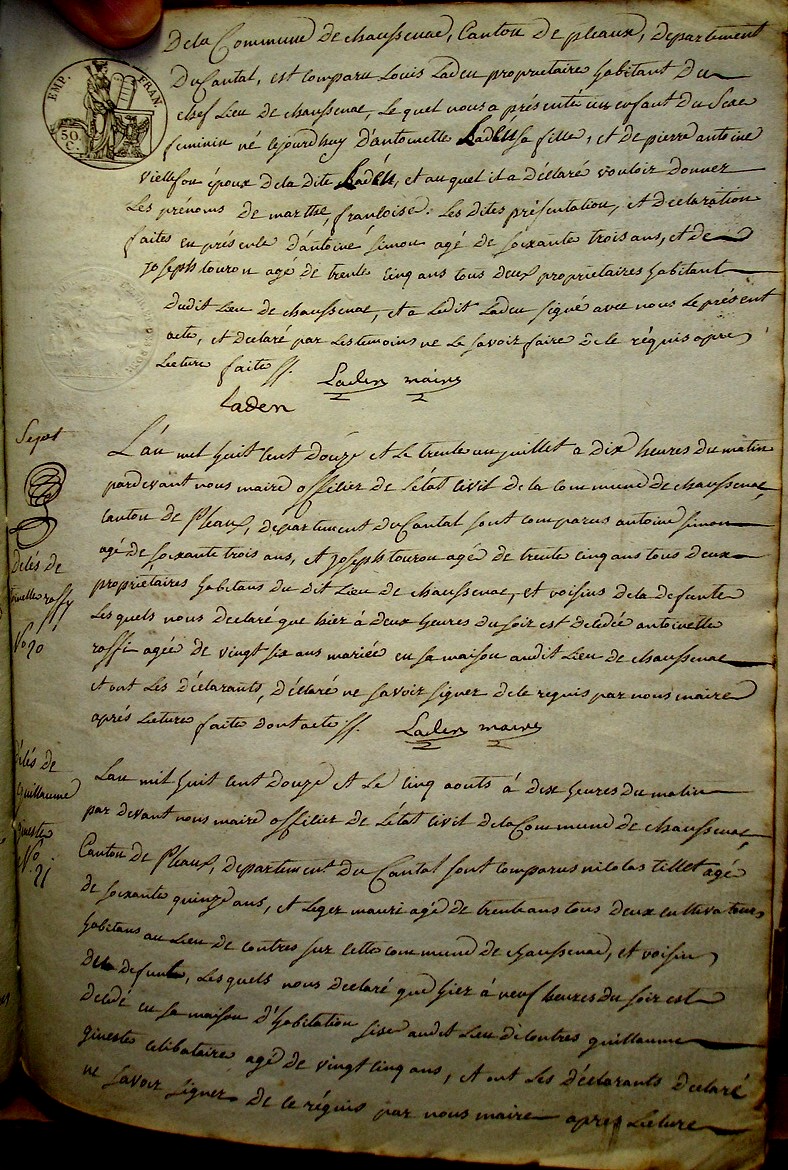 De la Commune de chaussenac, Canton de pleaux, departement
EMP. FRAN.
50 C.
Du Cantal, est comparu Louis Ladeu proprietaire habitant Du
chef Lieu de chaussenac, Le quel nous a présenté un enfant Du Sexe
feminin né cejourdhuy d'antoinette Ladeu sa fille, et de pierre antoine
viellefon époux De la dite Ladeu, et auquel il a déclaré vouloir Donner
Les prénoms de marthe, francoise. Les dites présentation, et Declaration
faites en présence d'antoine simon agé de soixante trois ans, et de
joseph touron agé de trente cinq ans tous Deux proprietaires habitant
dudit Lieu de chaussenac, et a Ledit Ladeu signé avec nous Le présent
acte, et Declaré par Les temoins ne Le savoir faire De ce réquis apres
Lecture faite //. Laden maire
Laden
L'an mil huit cent Douze et Le trente un juillet a dix heures du matin
pardevant nous maire officier de L'état civil de la commune de chaussenac
Canton de Pleaux, departement du Cantal sont comparus antoine simon
agé de soixante trois ans, et joseph touron agé de trente cinq ans tous deux
Décés de
propriétaires habitans du dit Lieu de chaussenac, et voisins de la defunte
roffy
Lesquels nous Declaré que hier à deux heures du soir est décédée antoinette
No 20
roffi agée de vingt six ans mariée en sa maison audit Lieu de chaussenac
et ont Les déclarants, déclaré ne savoir signer de ce requis par nous maire
aprés Lecture faite dont acte //. Laden maire
décés de
guillaume
gineste
No 21
L'an mil huit cent douze et Le cinq aouts à dix heures du matin
par devant nous maire officier de L'état civil de la Commune de chaussenac,
Canton de Pleaux, departement du Cantal sont comparus nicolas tillet agé
de soixante quinze ans, et Leger mauri agé de trente ans tous deux cultivateurs
habitans au Lieu de contres sur cette commune de chaussenac, et voisin
du defunt, Lesquels nous declaré que hier à neuf heures du soir est
décédé en sa maison d'habitation sise audit Lieu de contres guillaume
gineste celibataire agé de vingt cinq ans, et ont Les déclarants declaré
ne savoir signer de ce réquis par nous maire apres Lecture